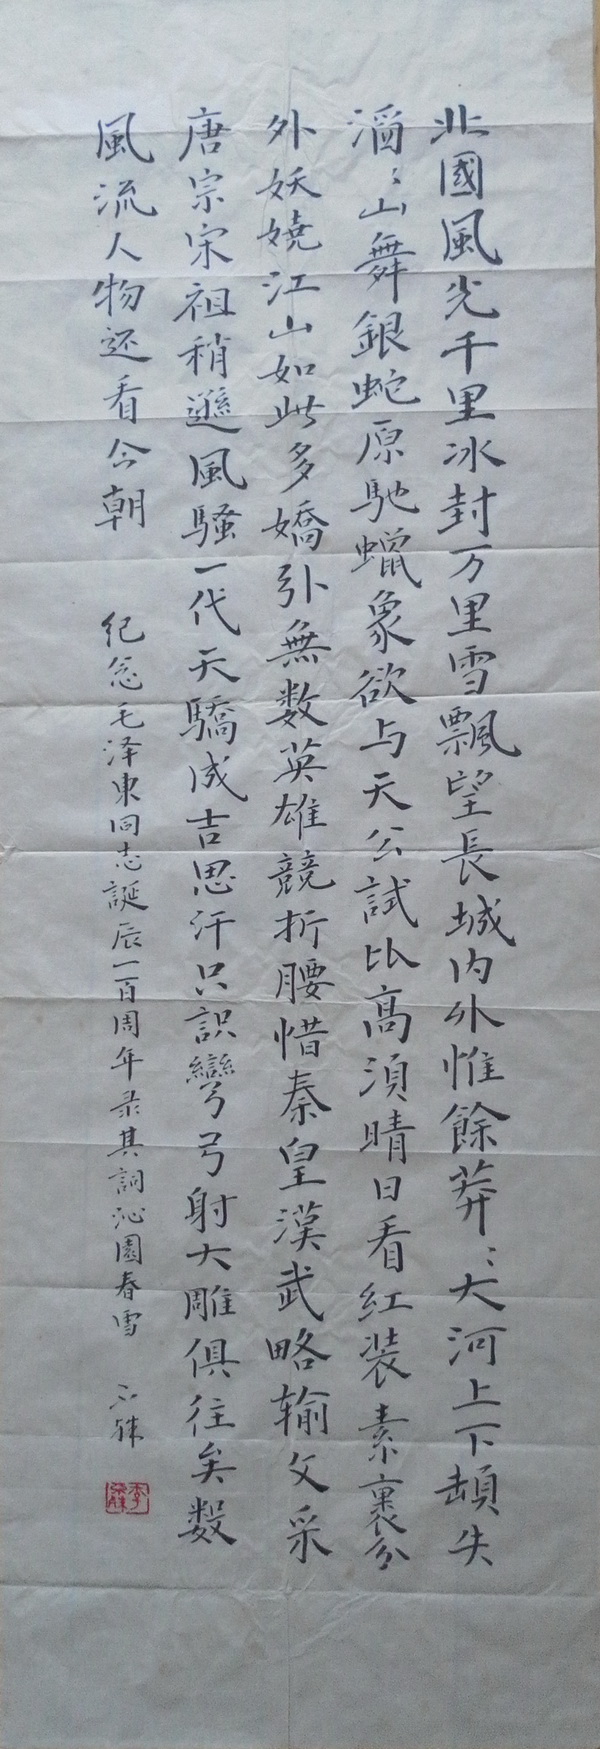 北國風光千里冰封万里雪飄望長城内外惟餘莽〻大河上下頓失
滔〻山舞銀蛇原馳蠟象欲与天公試比高須晴日看红装素裹分
外妖嬈江山如此多嬌引無数英雄競折腰惜秦皇漢武略输文采
唐宗宋祖稍遜風騷一代天驕成吉思汗只識彎弓射大雕俱往矣数
風流人物还看今朝
纪念毛泽東同志誕辰一百周年录其詞沁園春雪